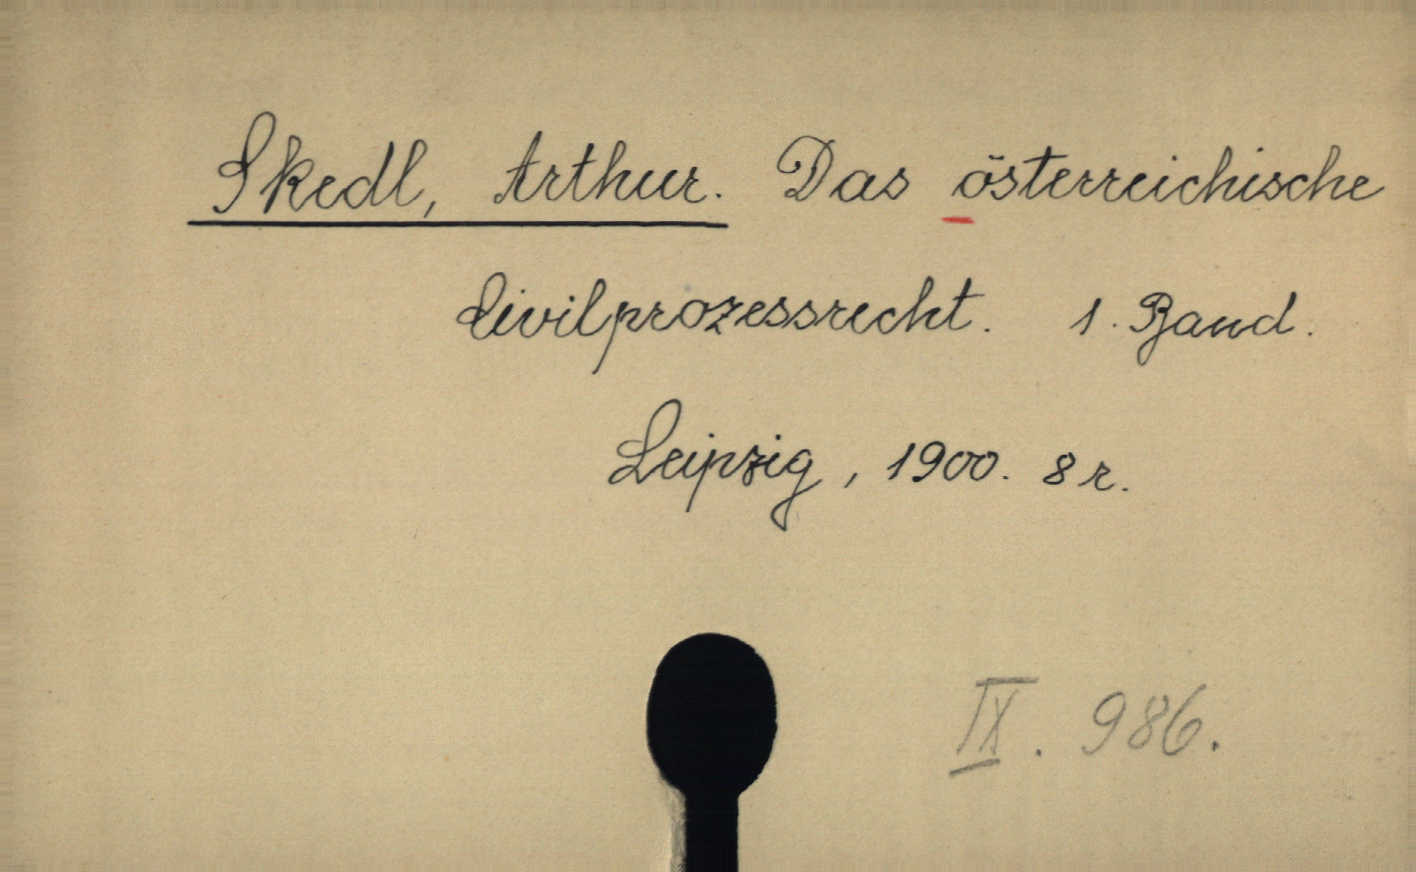 Skedl, Arthur. Das österreichische
Civilprozessrecht. 1. Band.
Leipzig, 1900. 8 r.
IX. 986.